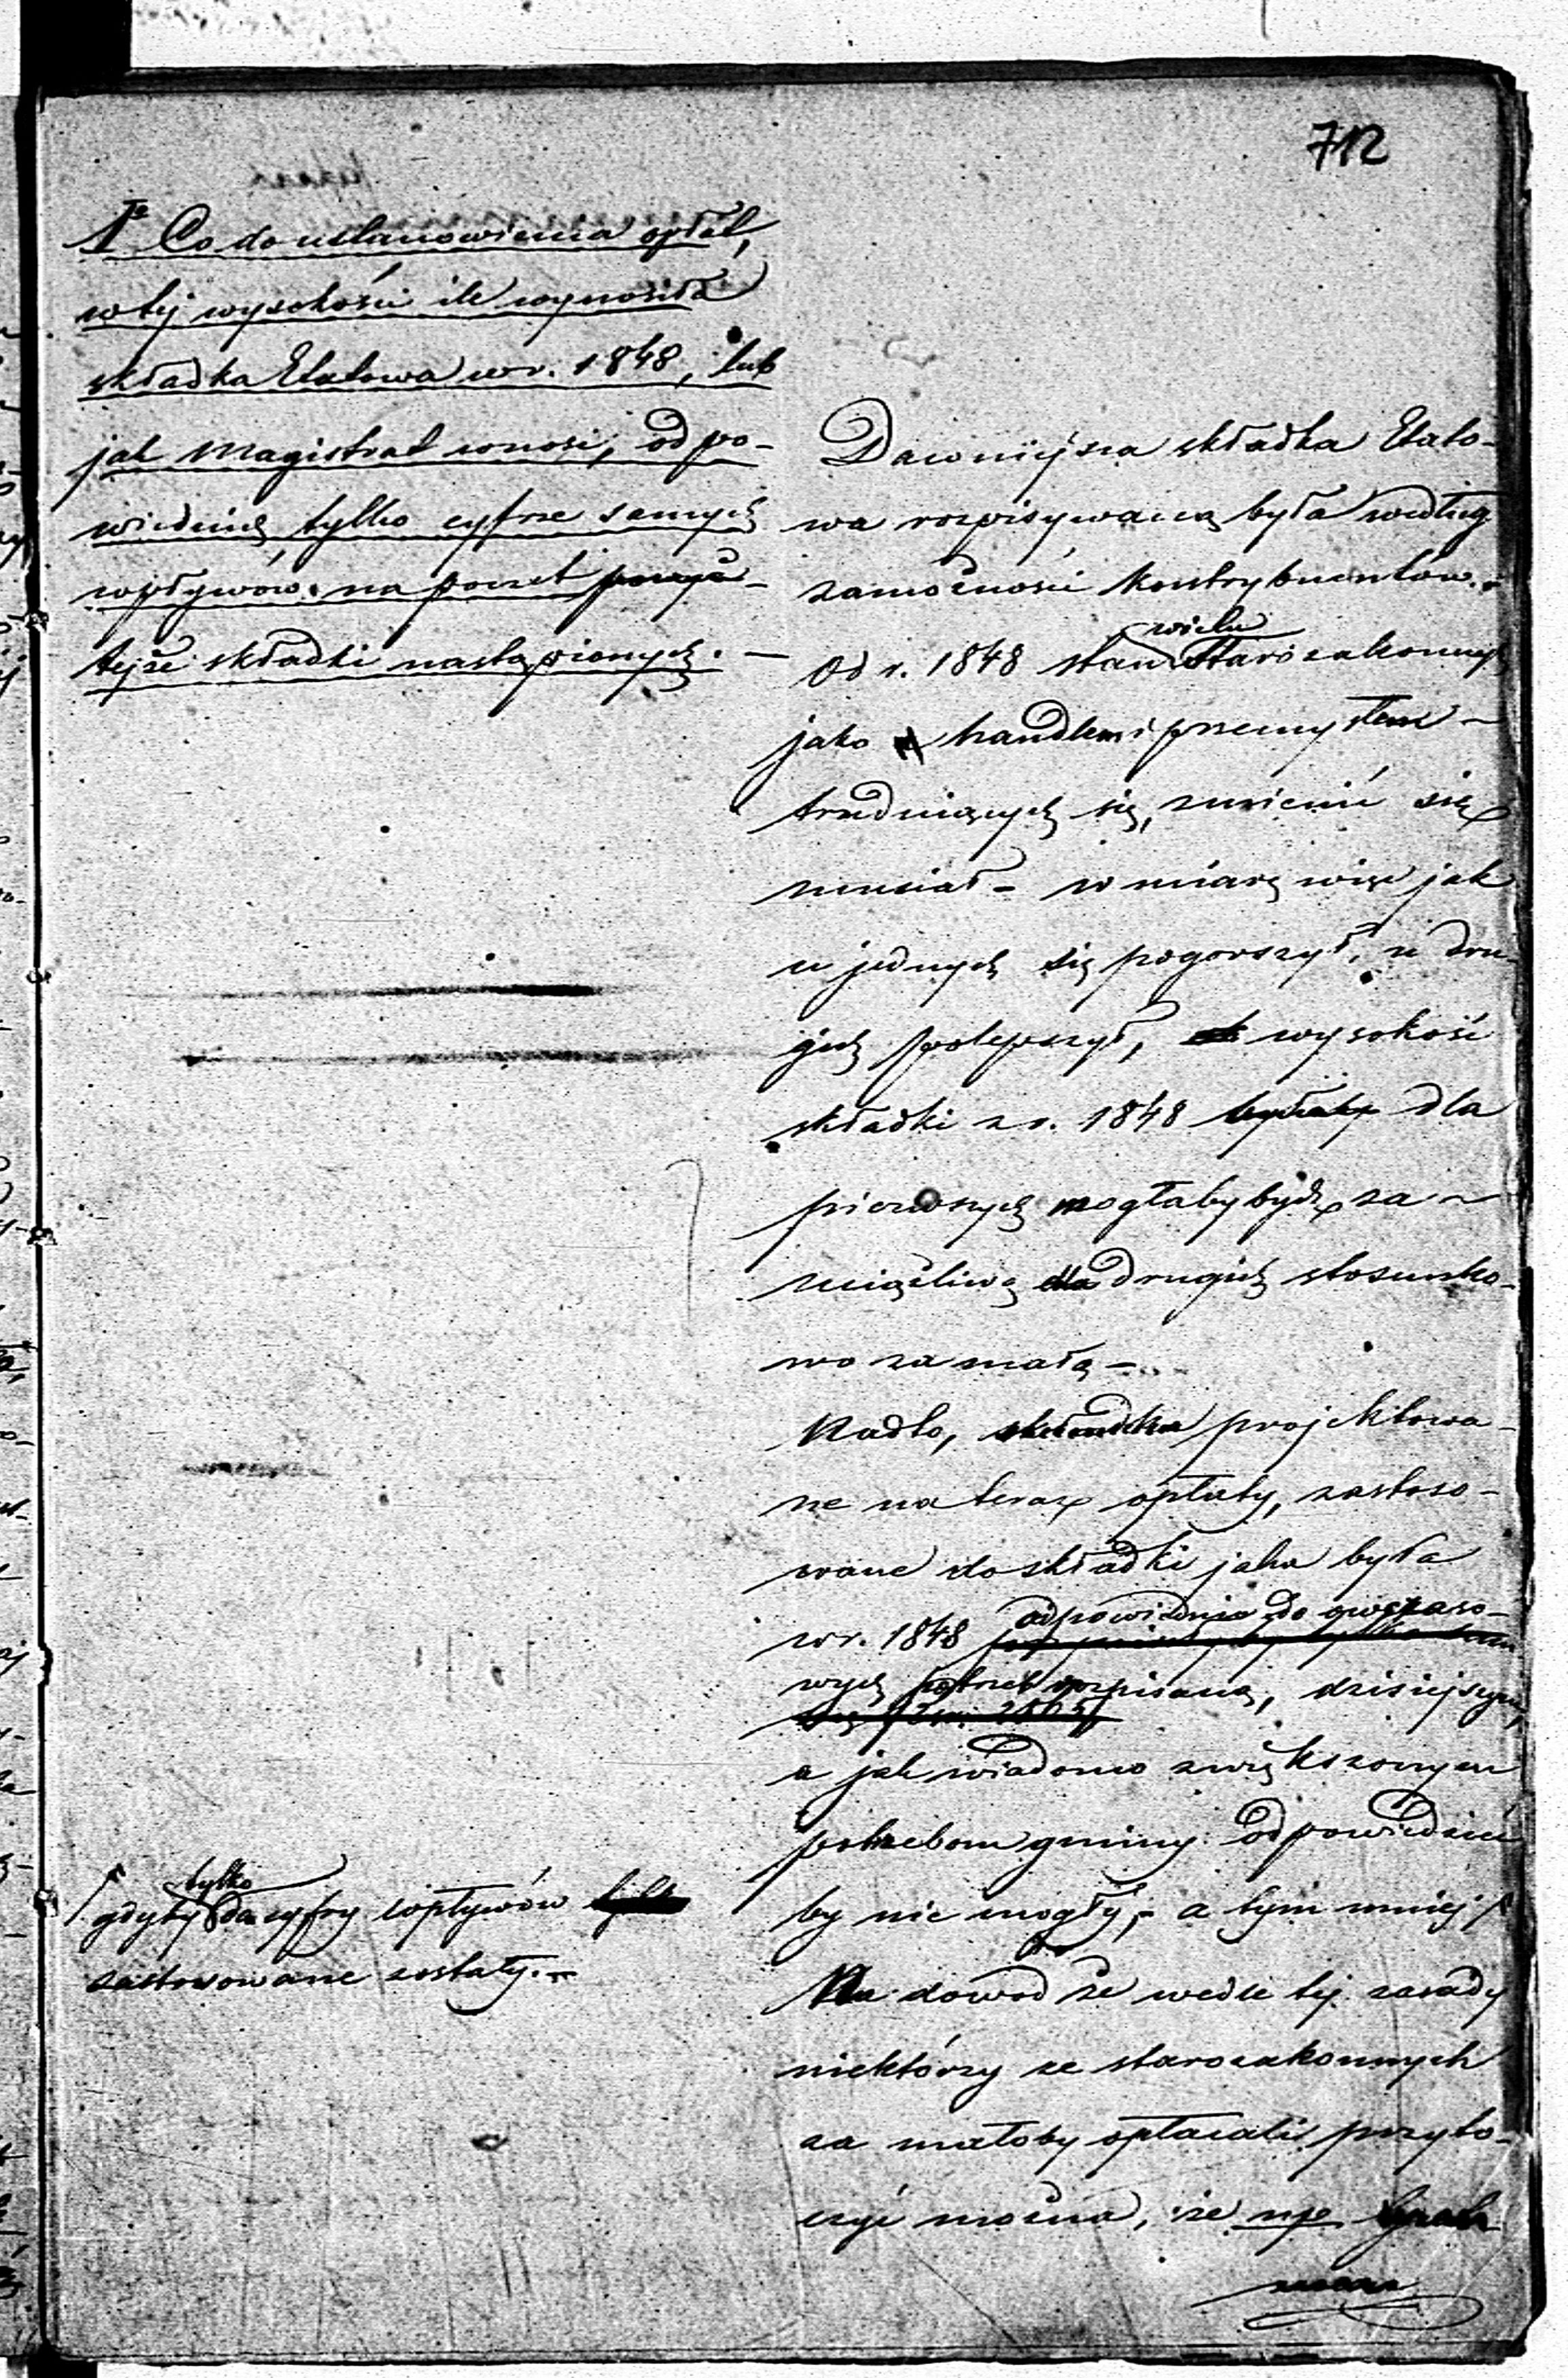 712
1o Co do ustanowienia opłat,
w tej wysokości ile wynosiła
składka Etatowa w r. 1848, lub
jak Magistrat wnosi, odpo-
wiednię tylko cyfrze samych
wpływów na poczet
tejże składki nastąpionych. —
Dawniejsza składka Etato-
wa rozpisywaną była według
zamożności kontrybuentów.
Od r. 1848 stan wielu Starozakonnych
jako handlem i przemysłem
trudniących się, zmienić się
musiał – w miarę więc jak
u jednych się pogorszył, u dru-
gich polepszył, wysokość
składki z r. 1848 byłaby dla
pierwszych mogłaby bydź za
uciążliwą dla drugich stosunko-
wo za małą –
Nadto, składka projektowa-
ne na teraz opłaty, zastoso-
wane do składki jaka była
w r. 1848 odpowiednio do owczaso-
wych potrzeb rozpisaną, dzisiejszym,
a jak wiadomo zwiększonym
potrzebom gminy odpowiednie
by nie mogły, – a tym mniej
gdyby tylko do cyfry wpływów
zastosowane zostały. –
Na dowód że wedle tej zasady
niektórzy ze starozakonnych
za małoby opłacali przyto-
czyć można, że np.